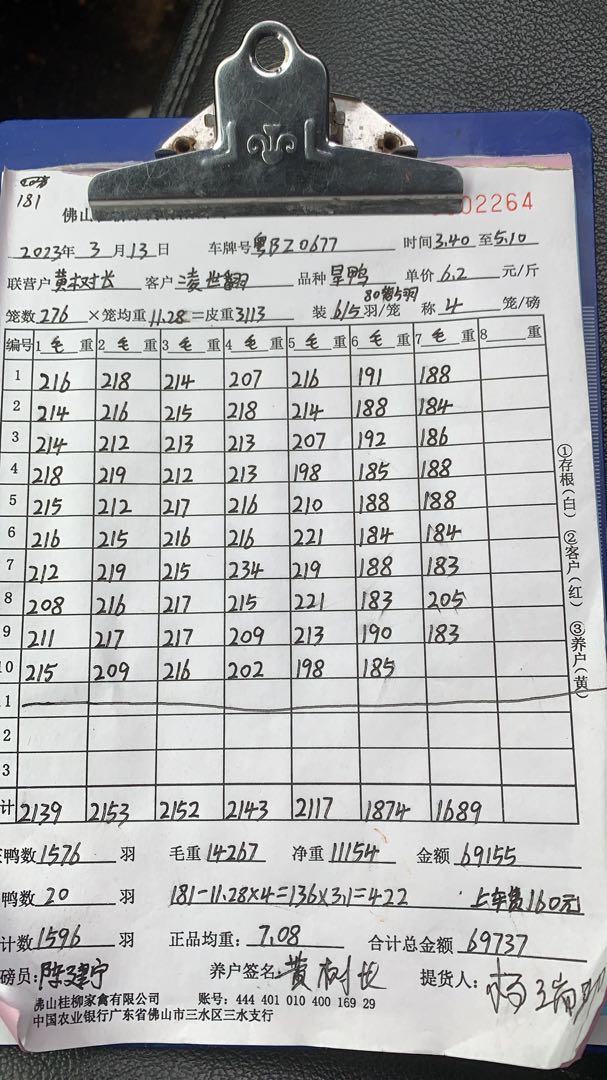 181
佛山
02264
2023年 3 月 13 日 车牌号 粤BZ0677 时间 3.40 至 5.10
联营户 黄树长 客户 凌世翻 品种 旱鸭 单价 6.2 元/斤
80笼5羽
笼数 276 ×笼均重 11.28 =皮重 3113 装 6/5 羽/笼 称 4 笼/磅
编号 1 毛 重 2 毛 重 3 毛 重 4 毛 重 5 毛 重 6 毛 重 7 毛 重 8 重
1 216 218 214 207 216 191 188
2 214 216 215 218 214 188 184
3 214 212 213 213 207 192 186
4 218 219 212 213 198 185 188
5 215 212 217 216 210 188 188
6 216 215 216 216 221 184 184
7 212 219 215 234 219 188 183
8 208 216 217 215 221 183 205
9 211 217 217 209 213 190 183
10 215 209 216 202 198 185
1
2
3
计 2139 2153 2152 2143 2117 1874 1689
①存根(白) ②客户(红) ③养户(黄)
鸭数 1576 羽 毛重 14267 净重 11154 金额 69155
鸭数 20 羽 181-11.28×4=136×3.1=422 上车费160元
计数 1596 羽 正品均重: 7.08 合计总金额 69737
磅员: 陈建宁 养户签名: 黄树长 提货人: 杨
佛山桂柳家禽有限公司 账号: 444 401 010 400 169 29
中国农业银行广东省佛山市三水区三水支行